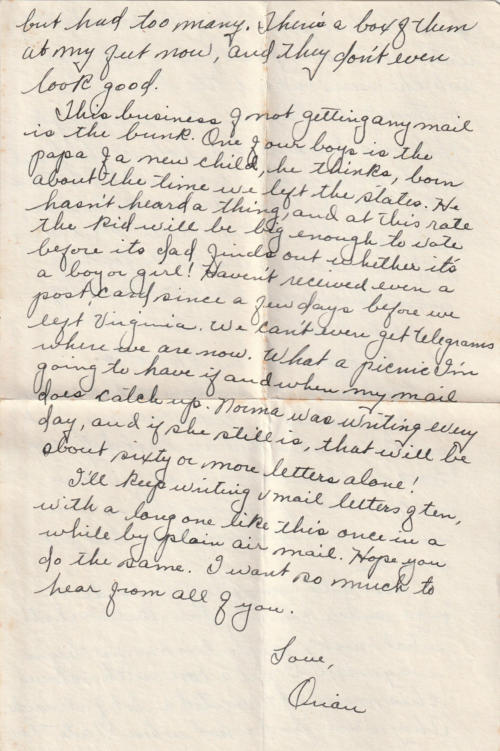 but had too many. There's a box of them
at my feet now, and they don't even
look good.
This business of not getting any mail
is the bunk. One of our boys is the
papa of a new child, he thinks, born
about the time we left the states. He
hasn't heard a thing, and at this rate
the kid will be big enough to vote
before its dad finds out whether it's
a boy or girl! Haven't received even a
post card since a few days before we
left Virginia. We can't even get telegrams
where we are now. What a picnic I'm
going to have if and when my mail
does catch up. Norma was writing every
day, and if she still is, that will be
about sixty or more letters alone!
I'll keep writing vmail letters often,
with a long one like this once in a
while by plain air mail. Hope you
do the same. I want so much to
hear from all of you.
Love,
Orian